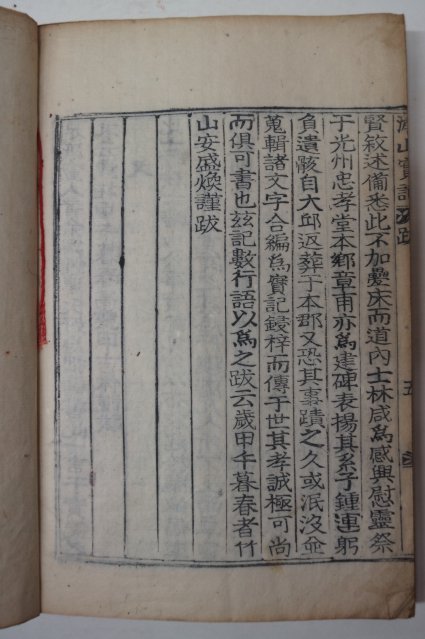 山實記 跋 五
賢敘述備悉此不加疊床而道內士林咸爲感興慰靈祭
于光州忠孝堂本鄉章甫亦爲建碑表揚其系子鍾連躬
負遺骸自大邱返葬于本郡又恐其事蹟之久或泯沒爺
蒐輯諸文字合編爲實記鋟梓而傳于世其孝誠極可尚
而俱可書也玆記數行語以爲之跋云歲甲午暮春者竹
山安盛煥謹跋